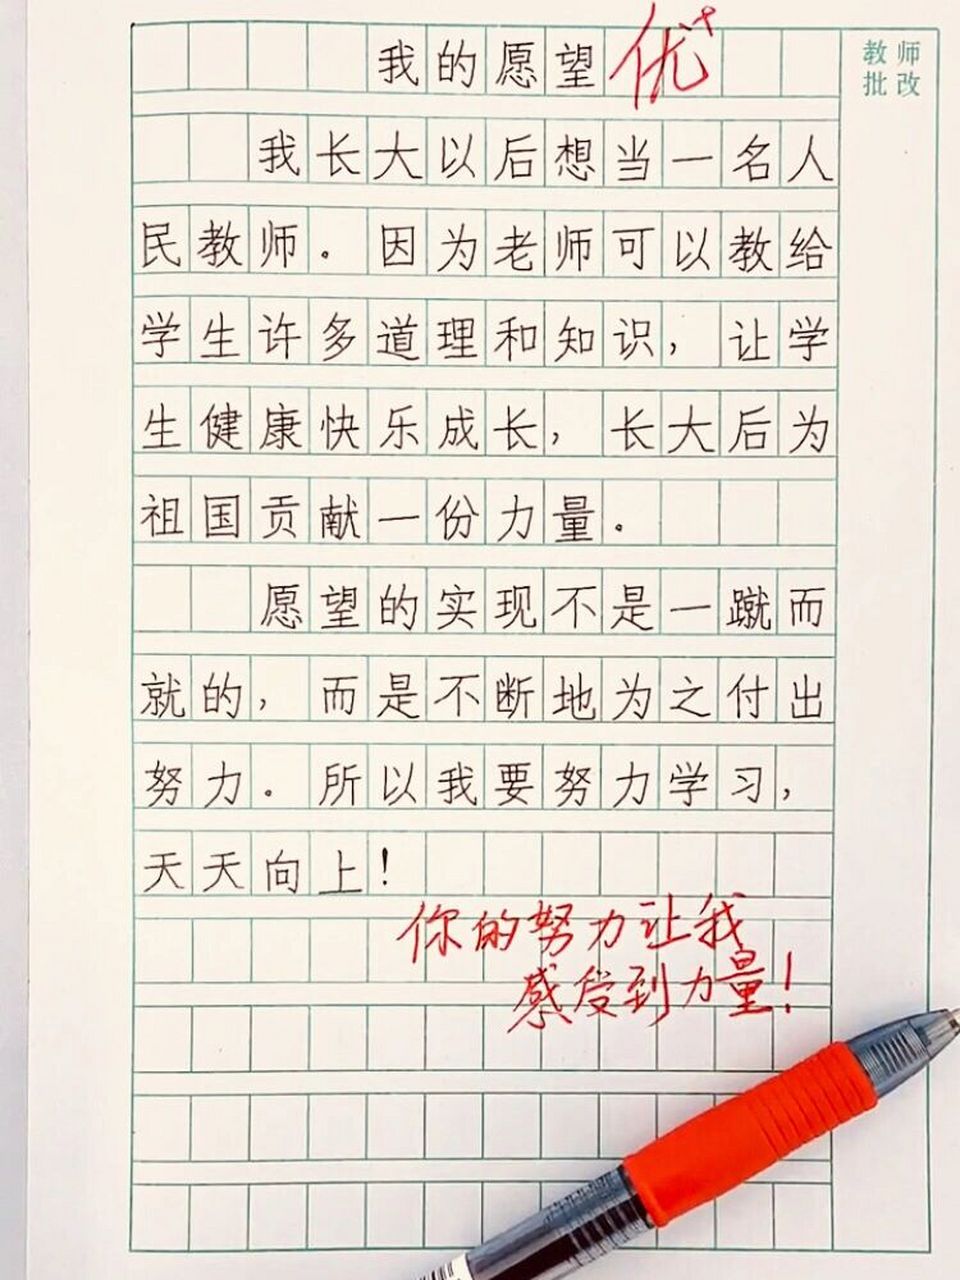 我的愿望 优+
教师
批改
我长大以后想当一名人
民教师。因为老师可以教给
学生许多道理和知识，让学
生健康快乐成长，长大后为
祖国贡献一份力量。
愿望的实现不是一蹴而
就的，而是不断地为之付出
努力。所以我要努力学习，
天天向上！
你的努力让我
感受到力量！